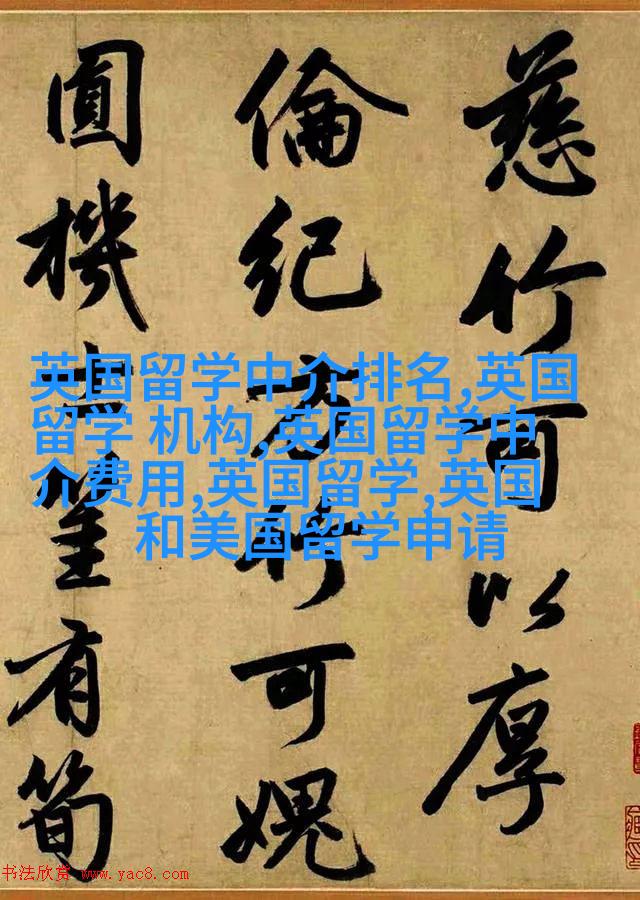 慈竹可以厚
倫紀方竹可媿
圓機士筀有筍
英国留学中介排名,英国
留学 机构,英国留学中
介费用,英国留学,英国
和美国留学申请
书法欣赏 www.yac8.com